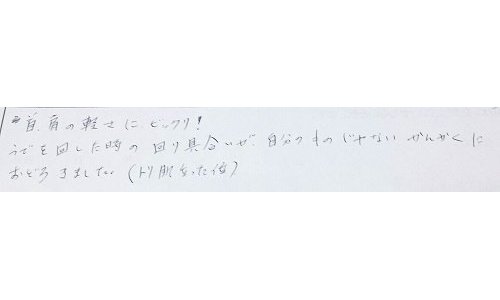 首、肩の軽さにビックリ!
うでを回した時の回り具合いが、自分のものじゃないかんかくに
おどろきました。(トリ肌立った位)